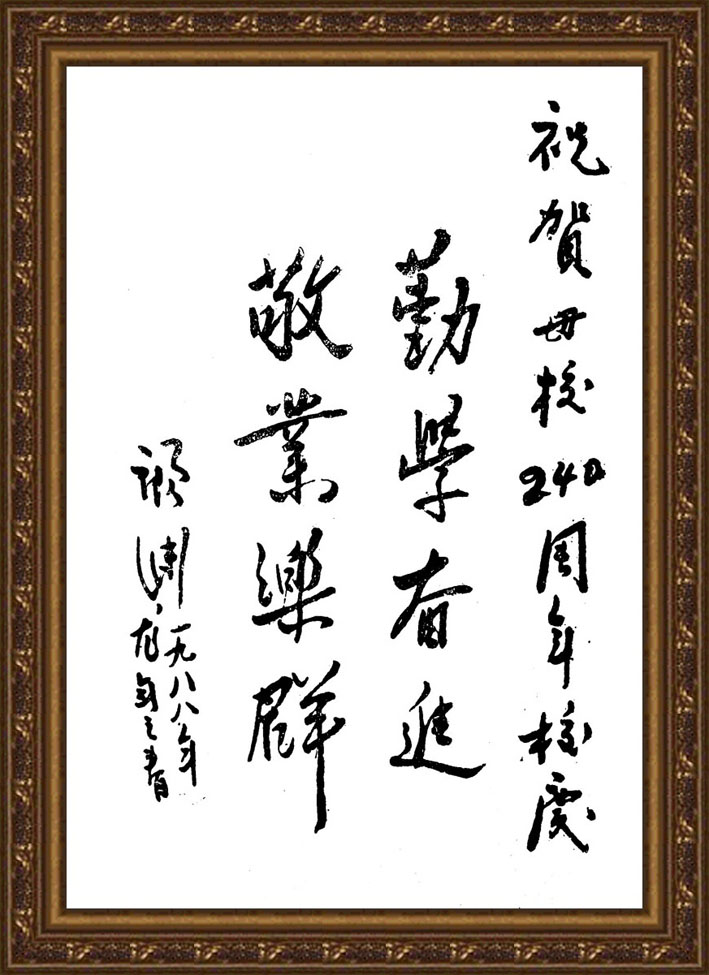 祝賀母校240周年校慶
勤學奋進
敬業樂群
一九八八年
龙年之春